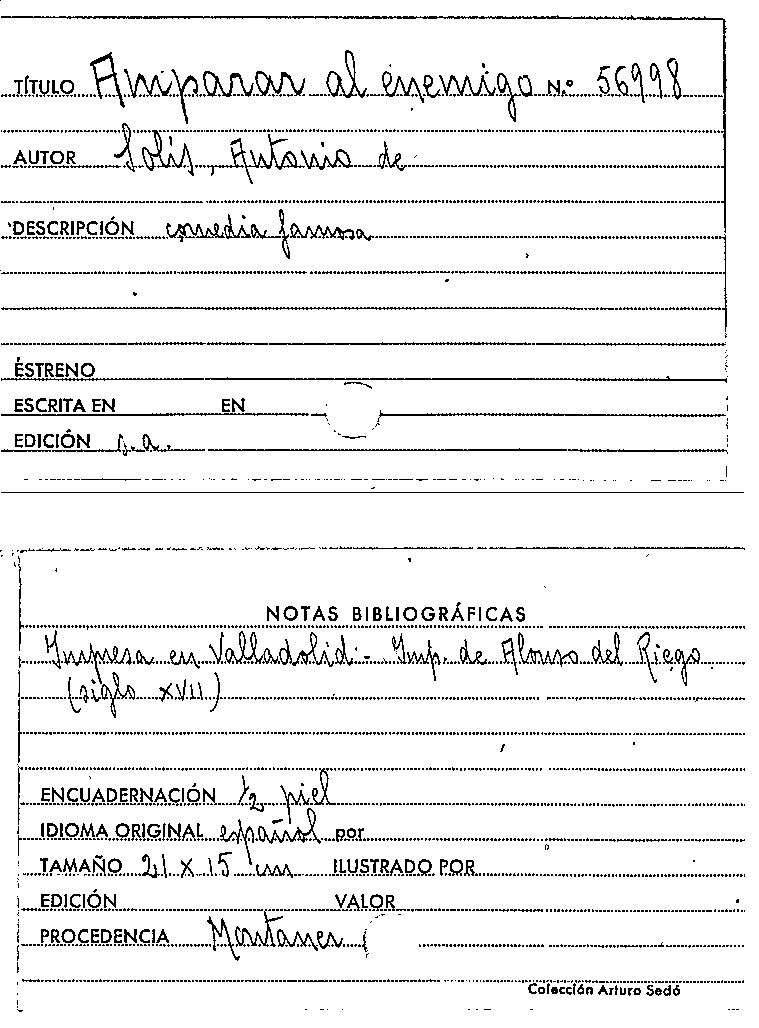 TÍTULO Amparar al enemigo N.º 56998
AUTOR Solís, Antonio de
DESCRIPCIÓN comedia famosa
ESTRENO
ESCRITA EN EN
EDICIÓN s.a.
NOTAS BIBLIOGRÁFICAS
Impresa en Valladolid:- Imp. de Alonso del Riego
(siglo XVII)
ENCUADERNACIÓN 1/2 piel
IDIOMA ORIGINAL español por
TAMAÑO 21 x 15 cm ILUSTRADO POR
EDICIÓN VALOR
PROCEDENCIA Montaner
Colección Arturo Sedó